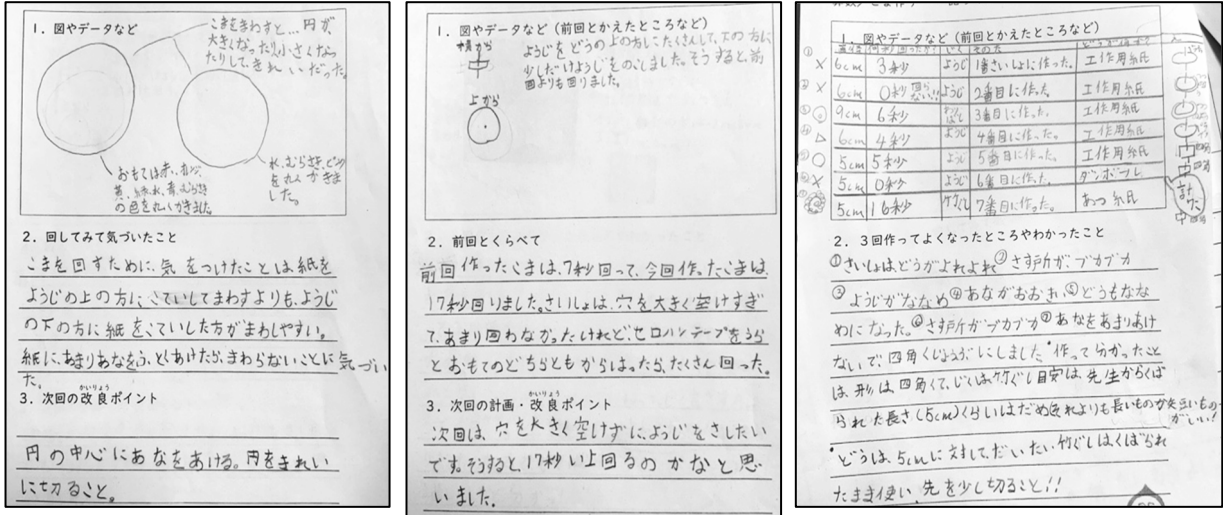 1．図やデータなど
こまをまわすと…円が、
大きくなったり小さくなっ
たりして、きれいだった。
おもては赤、
の色を丸いかきました。
水、むらさき、ピンク
を丸くかきま
した。
2．回してみて気づいたこと
こまを回すために、気をつけたことは、紙を
ようじの上の方に、こていしてまわすよりも、ようじ
の下の方に紙をこていした方がまわしやすい。
紙に、あまりあなをふとくあけたら、まわらないことに気づい
た。
3．次回の改良ポイント
かいりょう
円の中心にあなをあける。円をきれい
に切ること。
1．図やデータなど（前回とかえたところなど）
横から
上から
ようじをどうの上の方にたくさんして、下の方に
少しだけようじをのこしました。そうすると、前
回よりも回りました。
2．前回とくらべて
前回作ったこまは、7秒回って、今回作ったこまは、
17秒回りました。さいしょは、穴を大きく空けすぎ
て、あまり回わなかったけれど、セロハンテープをうら
とおもてのどちらともからはったら、たくさん回った。
3．次回の計画・改良ポイント
かいりょう
次回は、穴を大きく空けずに、ようじをさしたい
です。そうすると、17秒い上回るのかなと思
いました。
1．図やデータなど（前回とかえたところなど）
① × 6cm 3秒 ようじ 1番さいしょに作った。 工作用紙
② × 6cm 0秒 ようじ 2番目に作った 工作用紙
③ 9cm 6秒 3番目に作った。 工作用紙
④ △ 6cm 4秒 ようじ 4番目に作った。 工作用紙
⑤ ○ 5cm 5秒 ようじ 5番目に作った。 工作用紙
⑥ × 5cm 0秒 ようじ 6番目に作った。 ダンボール
⑦ 5cm 16秒 竹ぐし 7番目に作った。 あつ紙
2．3回作ってよくなったところやわかったこと
①さいしょは、どうがよれよれ②さす所が、ブカブカ
③ようじがななめ④あながおおきい⑤どうもなな
めになった。⑥さす所がブカブカ⑦あなをあまりあけ
ないで、四角くじょうぶにしました・作って分かったこと
は、形は、四角くて、じくは、竹ぐし目安は、先生からくば
られた長さ(5cm)くらいはだめそれよりも長いものが
がいい！
・どうは、5cmに対して、だいたい竹ぐしは、くばられ
たまま使い、先を少し切ること!!